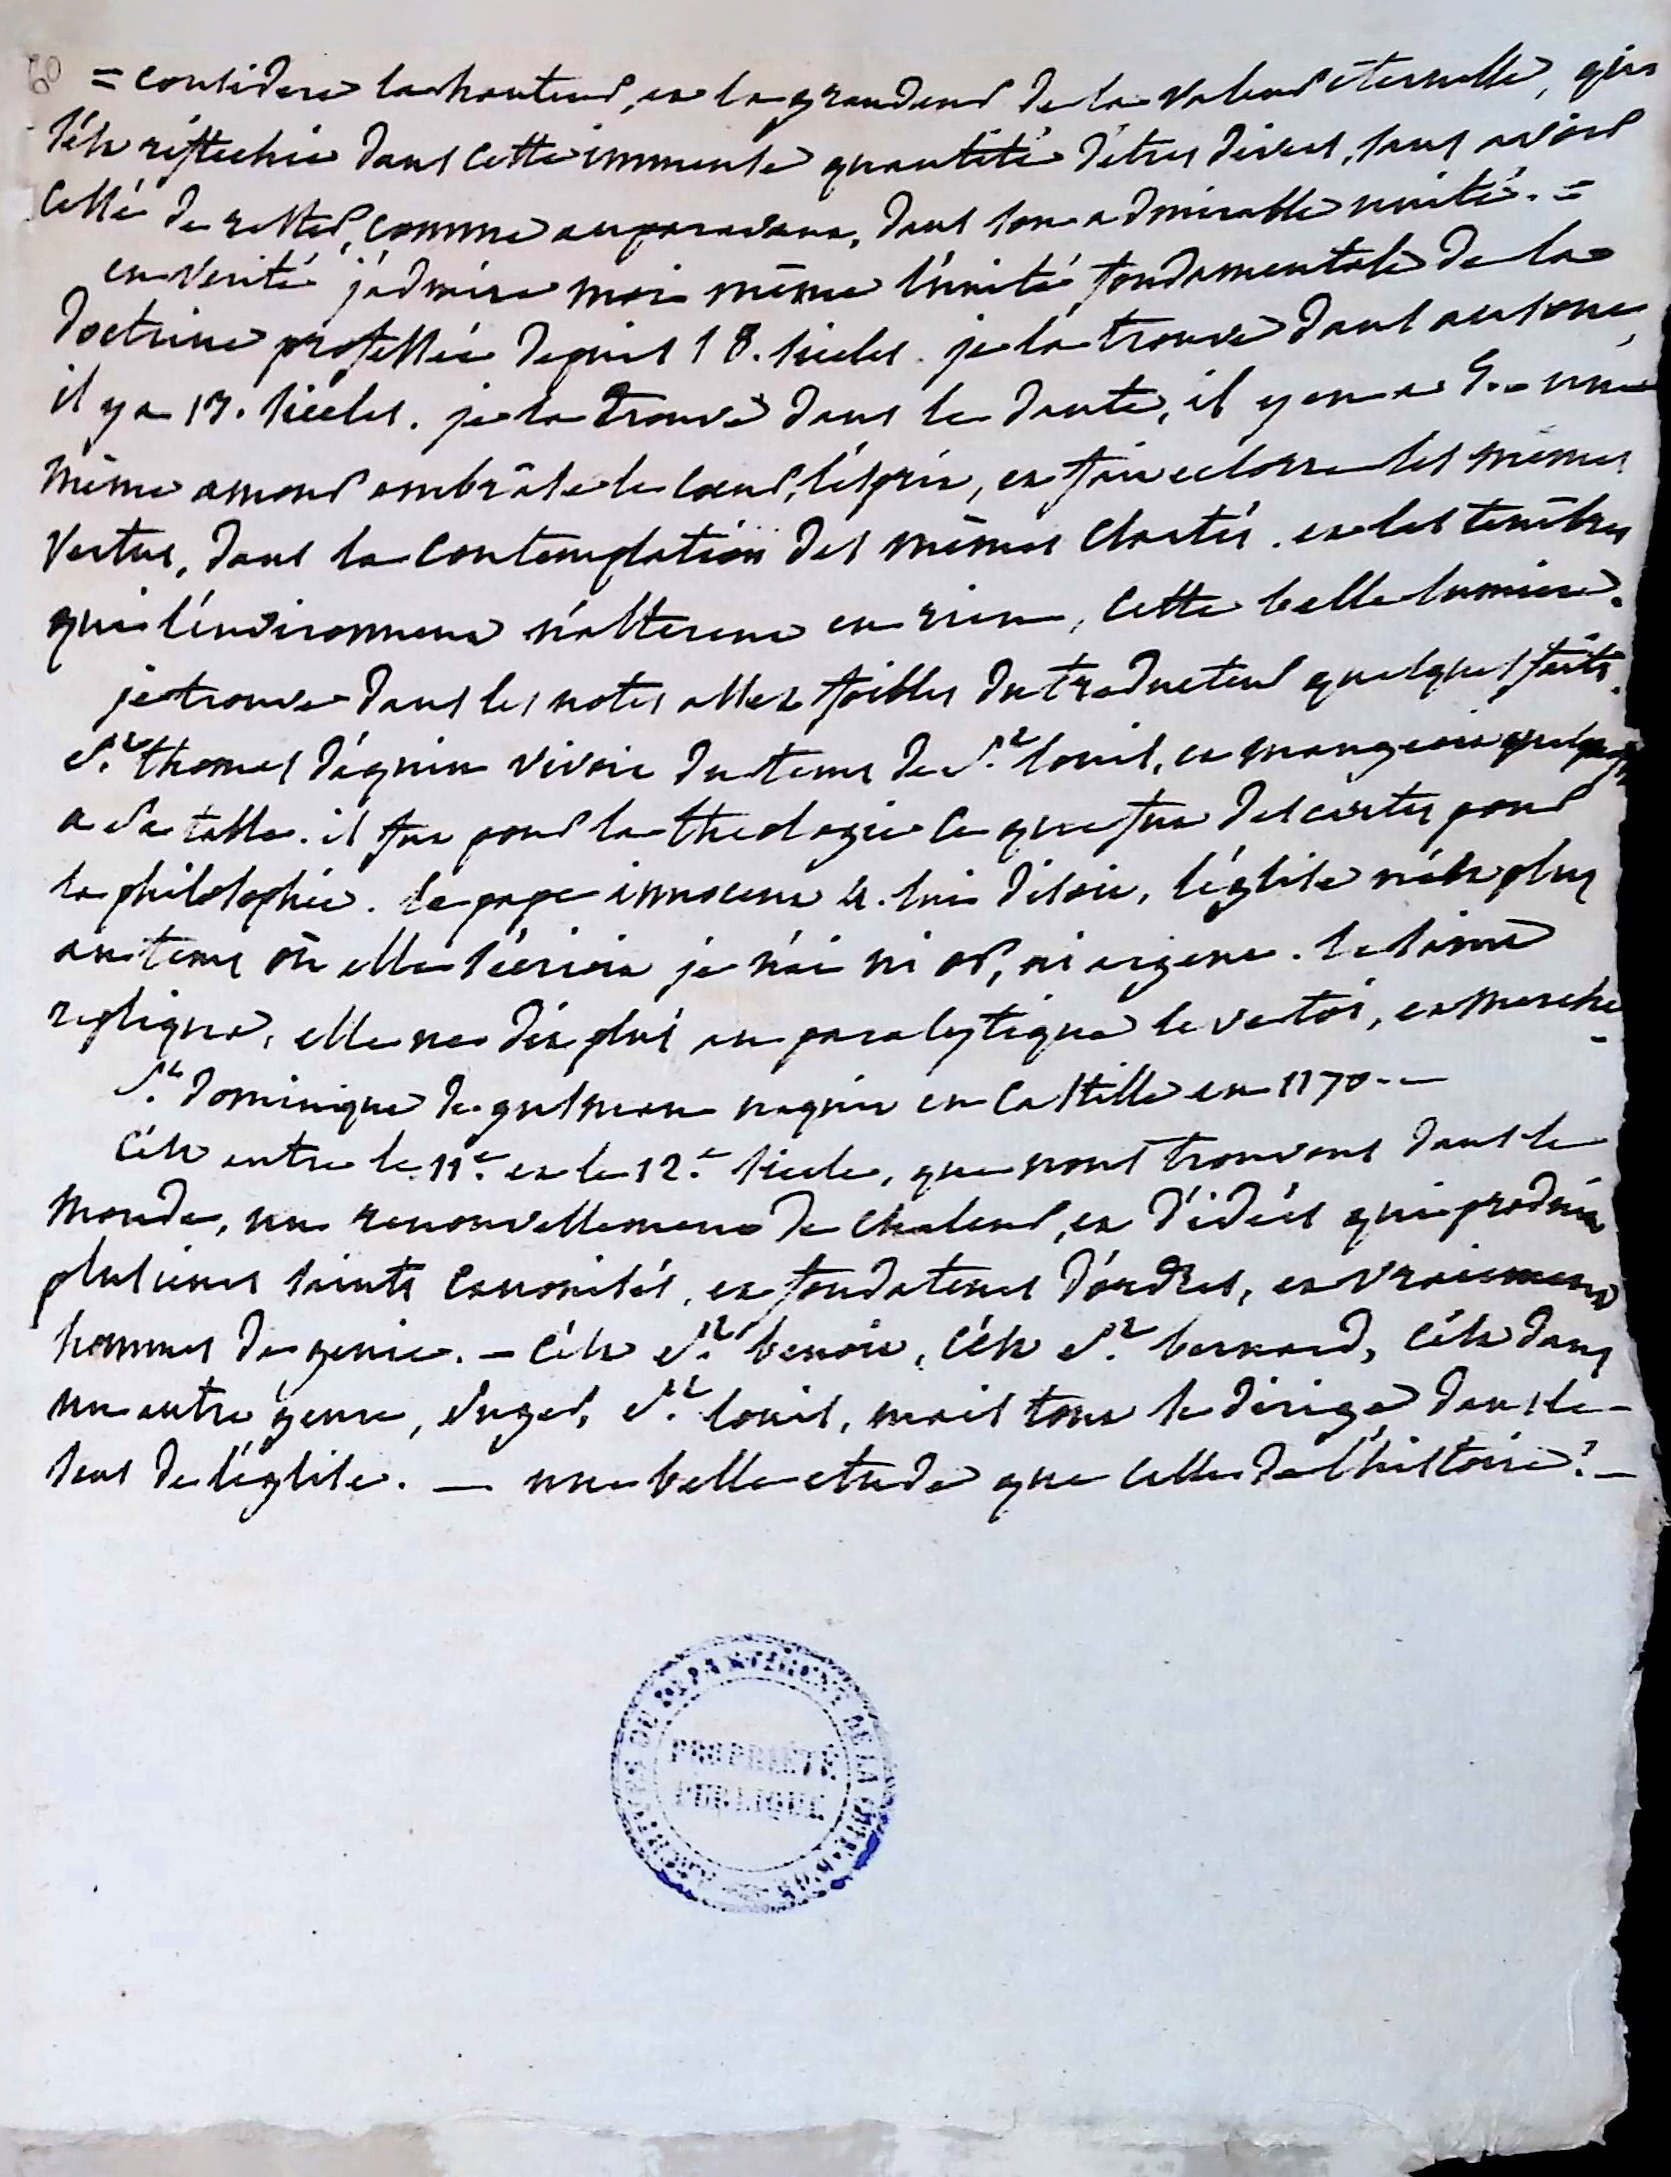 = considere la hauteur, et la grandeur de la valeur éternelle, qui
s'est réflechie dans cette immense quantité d'êtres divers, sans avoir
cessé de rester, comme auparavant, dans son admirable unité. =
en verité j'admire moi même l'unité fondamentale de la
doctrine professée depuis 18. siecles. je la trouve dans ausone,
il y a 13. siecles. je la trouve dans le dante, il y en a 5. - une
même amour embrâse le coeur, l'esprit, et fait eclorre les mêmes
vertus, dans la contemplation des mêmes clartés. et les tenêbres
qui l'environnent n'alterent en rien, cette belle lumiere.
je trouve dans les notes assez foibles du traducteur quelques faits.
St. thomas d'aquin vivoit du tems de St. louis, et mangeoit quelquefois
a sa table. il fut pour la theologie ce que fut descartes pour
la philosophie. le pape innocent 4. lui disoit, l'église n'est plus
au tems où elle s'écrioit je n'ai ni or, ni argent. le saint
repliqua, elle ne dit plus au paralytique leve toi, et marche
St. dominique de gusman naquit en Castille en 1170. -
c'est entre le 11e. et le 12e. siecle, que nous trouvons dans le
monde, un renouvellement de chaleur, et d'idées qui produit
plusieurs saints canonisés, et fondateurs d'ordres, et vraiment
hommes de genie. - c'est St. benoit, c'est St. bernard, c'est dans
un autre genre, suger, St. louis, mais tout se dirige dans le
sens de l'église. — une belle etude que celle de l'histoire! -
ARCHIVES DU DEPARTEMENT DE LA COTE-D'OR
PROPRIÉTÉ
PUBLIQUE